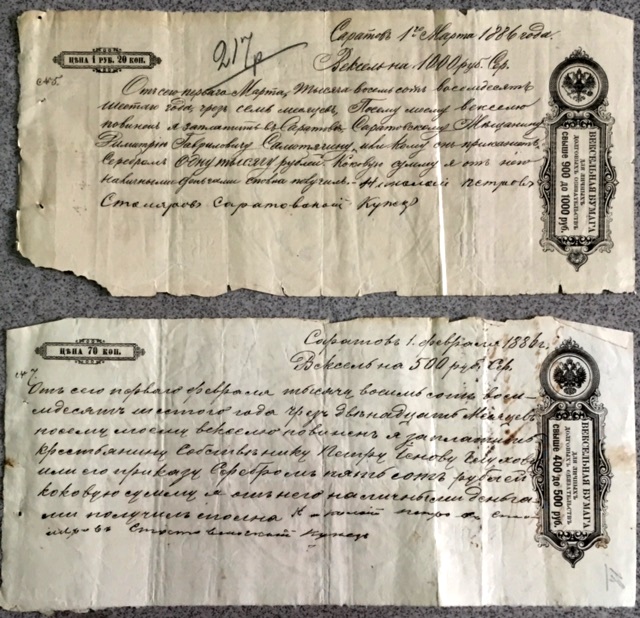 ЦѢНА 1 РУБ. 20 КОП.
217р
Саратовъ 1го Марта 1886 года.
Вексель на 1000 руб. Ср.
Отъ сего перваго Марта, тысяча восемь сотъ восемдесятъ
шестаго года, чрезъ семь месяцевъ, По сему моему векселю
повиненъ я заплатить въ Саратове, Саратовскому Мещанину
Гавриловичу или кому онъ прикажетъ
Серебромъ одну тысячу рублей Коковую сумму я отъ него
наличными деньгами сполна получилъ. - Николай Петровъ
Столяровъ Саратовской Купецъ
ВЕКСЕЛЬНАЯ БУМАГА
ДЛЯ ЛИЧНЫХЪ
ДОЛГОВЫХЪ ОБЯЗАТЕЛЬСТВЪ
свыше 900 до 1000 руб.
ЦѢНА 70 КОП.
Саратовъ 1. февраля 1886 г.
Вексель на 500 руб. Ср.
Отъ сего перваго февраля тысяча восемь сотъ восе-
мдесятъ шестого года чрезъ двенадцать месяцевъ
по сему моему векселю повиненъ я заплатить
крестьянину Собственнику Петру
или его приказу Серебромъ пять сотъ рублей
коковую сумму я отъ него наличными деньга-
ми получилъ сполна Николай Петровъ Стол
яровъ Купецъ
ВЕКСЕЛЬНАЯ БУМАГА
ДЛЯ ЛИЧНЫХЪ
ДОЛГОВЫХЪ ОБЯЗАТЕЛЬСТВЪ
свыше 400 до 500 руб.